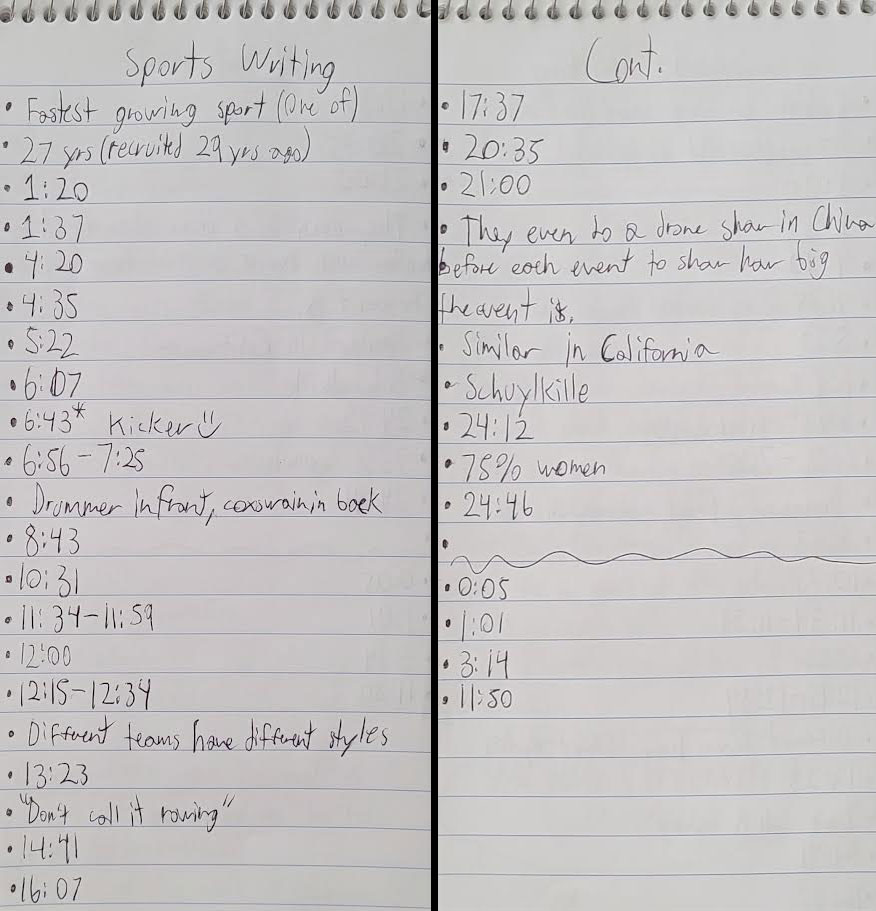 Sports Writing
• Fastest growing sport (One of)
• 27 yrs (recruited 29 yrs ago)
• 1:20
• 1:37
• 4:20
• 4:35
• 5:22
• 6:07
• 6:43* Kicker
• 6:56 - 7:25
• Drummer in front, coxswain in back
• 8:43
• 10:31
• 11:34 - 11:59
• 12:00
• 12:15 - 12:34
• Different teams have different styles
• 13:23
• "Don't call it rowing"
• 14:41
• 16:07
Cont.
• 17:37
• 20:35
• 21:00
• They even do a drone show in China
before each event to show how big
the event is.
• Similar in California
• Schuylkille
• 24:12
• 75% women
• 24:46
•
• 0:05
• 1:01
• 3:14
• 11:50